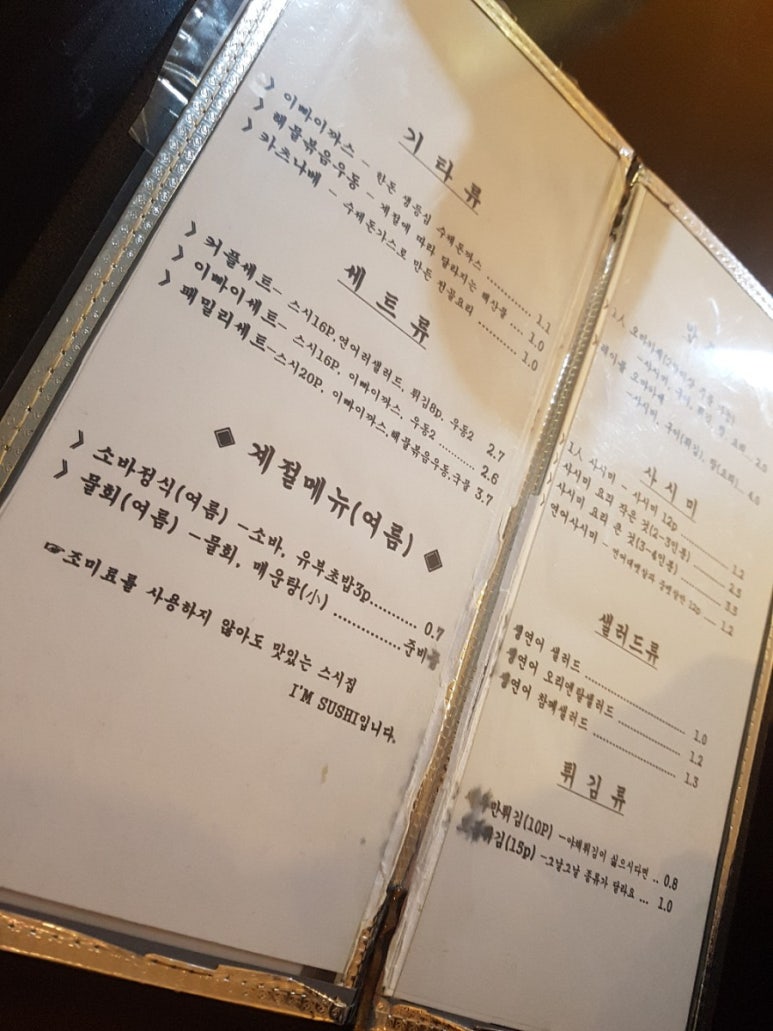 기타류
> 이빠이까스 - 한돈 생등심 수제돈까스 ............ 1.1
> 해물볶음우동 - 계절에 따라 달라지는 해산물 .... 1.0
> 카츠나베 - 수제돈가스로 만든 전골요리 .......... 1.0
세트류
> 커플세트- 스시16P,연어러샐러드, 튀김8p, 우동2 2.7
> 이빠이세트- 스시16P, 이빠이까스, 우동2 .......... 2.6
> 패밀리세트-스시20P, 이빠이까스,해물볶음우동,국물 3.7
◆ 계절메뉴(여름) ◆
> 소바정식(여름) -소바, 유부초밥3p.......... 0.7
> 물회(여름) -물회, 매운탕(小) ..............준비중
☞조미료를 사용하지 않아도 맛있는 스시집
I'M SUSHI입니다.
> 1人 오마카세
-사시미, 국어, 튀김, 탕, 요리... 2.5
> 테이블 오마카세
-사시미, 국어(튀김), 탕(요리)... 4.0
사시미
> 1人 사시미 - 사시미 12p ............ 1.2
> 사시미 요리 작은 것(2-3인분) ........ 2.5
> 사시미 요리 큰 것(3-4인분) ........ 3.5
> 연어사시미 - 연어대뱃살과 등뱃살만 12p ... 1.2
샐러드류
생연어 샐러드 .................. 1.0
생연어 오리엔탈샐러드 ............ 1.2
생연어 참깨샐러드 ................ 1.3
튀김류
만튀김(10P) -야채튀김이 싫으시다면 .. 0.8
튀김(15p) -그날그날 종류가 달라요 ... 1.0